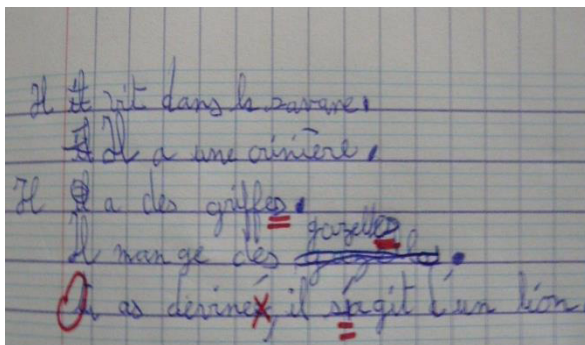 Il vit dans la savane.
Il a une crinière.
Il a des griffes.
gazelles
Il mange des .
as deviné, il s'agit d'un lion